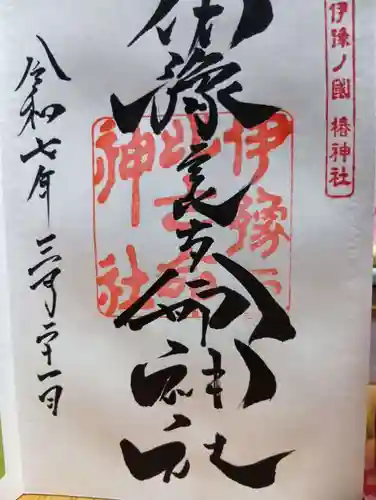 伊豫ノ國 椿神社
伊豫豆比古命神社
伊豫豆
比古命
神社
令和七年三月二十一日